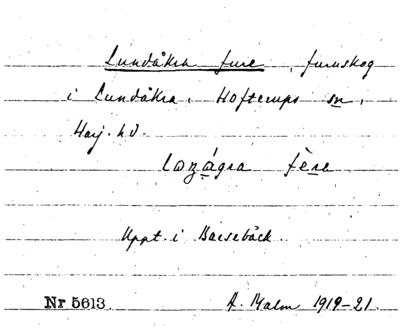 Lundåkra fure, furuskog
i Lundåkra, Hofterups sn,
Harj. hd.
fère
Uppt. i Barsebäck
Nr 5613. A. Malm 1919-21.